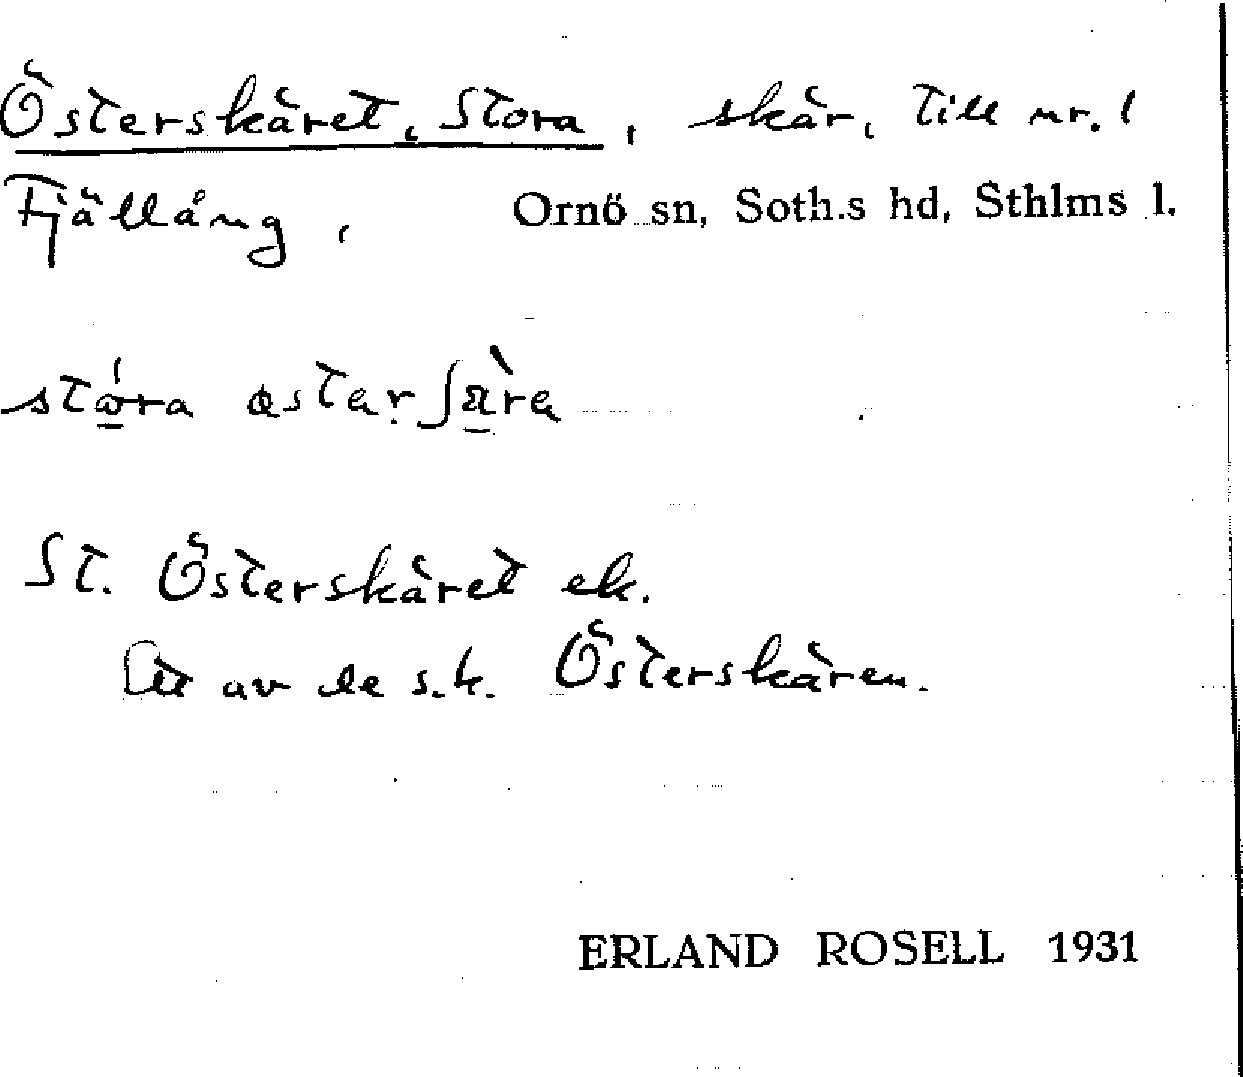 Österskäret, Stora, skär, till nr. 1
Fjällång, Ornö sn, Soth.s hd, Sthlms l.
stó̲ra
St. Österskäret ek.
Ett av de s.k. Österskären.
ERLAND ROSELL 1931